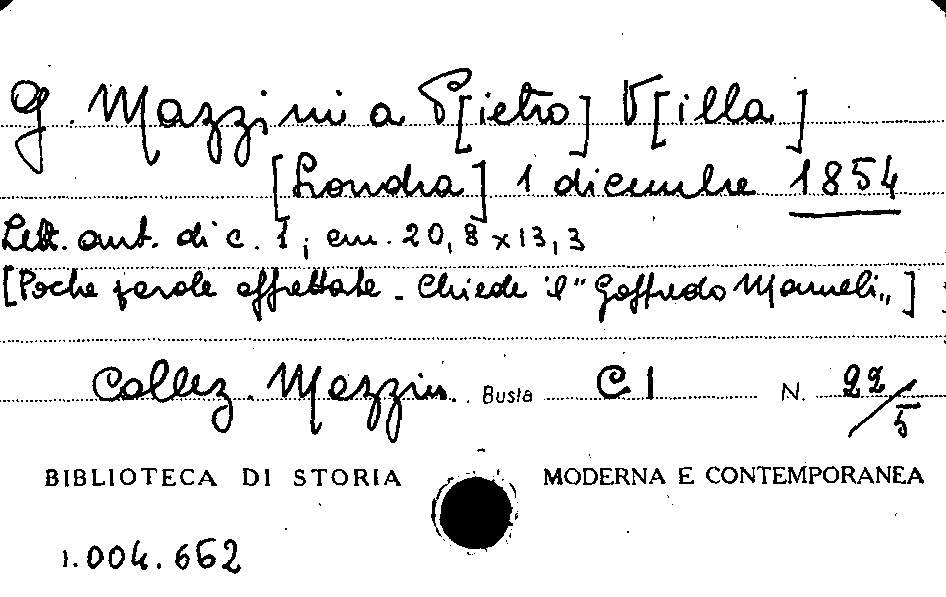 G. Mazzini a P[ietro] V[illa]
[Londra] 1 dicembre 1854
Lett. aut. di c. 1, cm. 20,8 x 13,3
[Poche parole affrettate - Chiede il "Goffredo Mameli„]
Collez. Mazzini. Busta C I N. 22/5
BIBLIOTECA DI STORIA MODERNA E CONTEMPORANEA
1.004.662